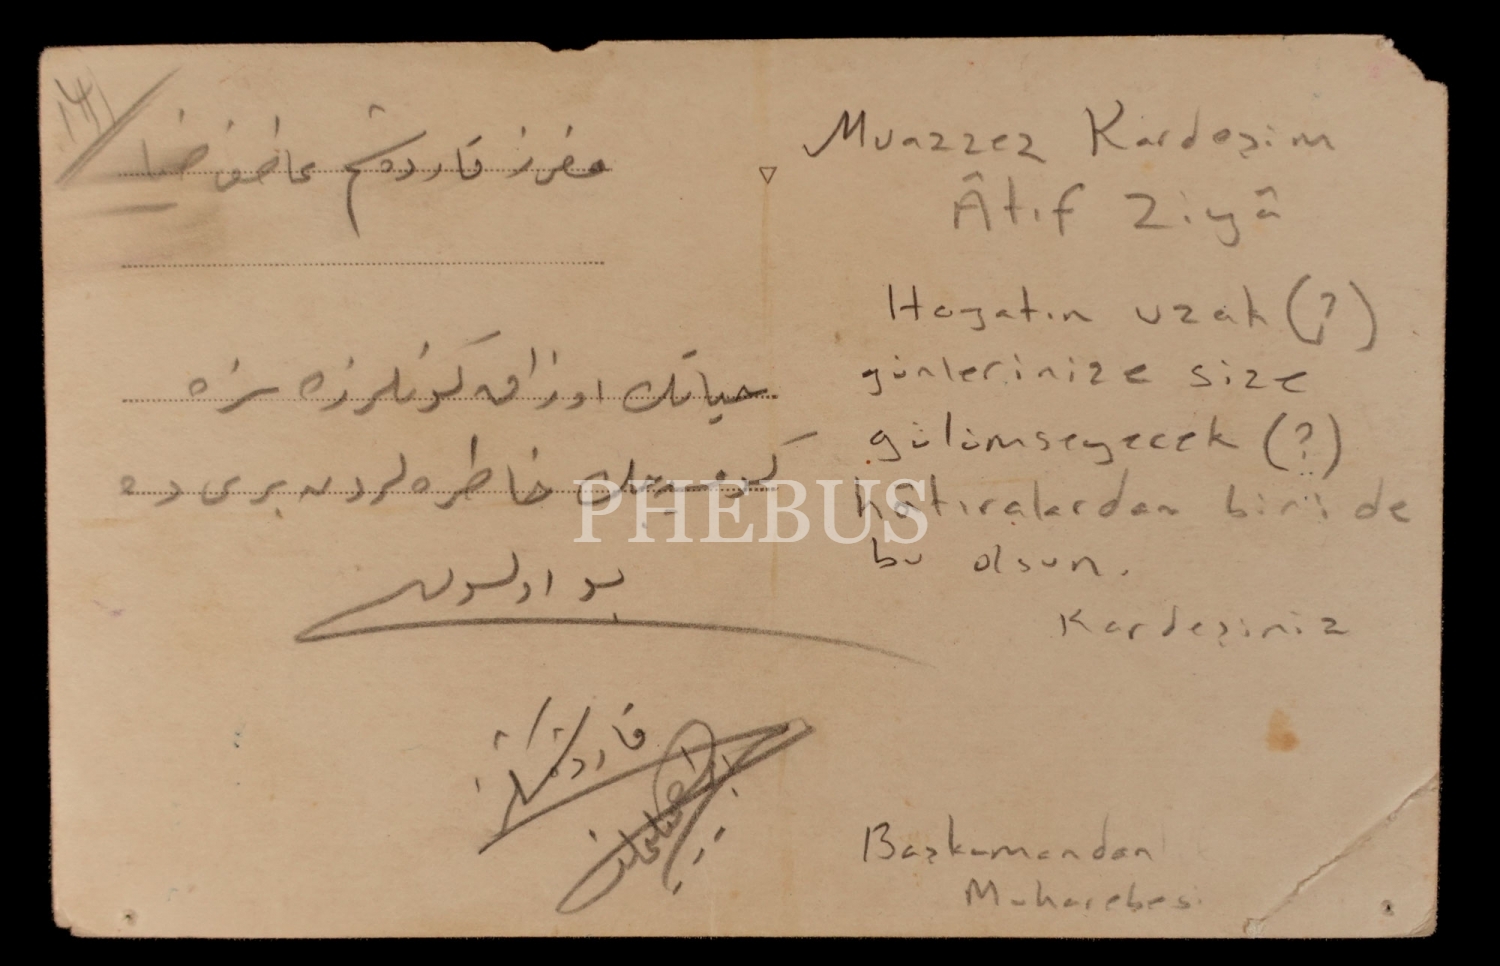 معزز قاردشم عاطف ضیا
حیاتك اوزاق كونلرزه سزه
كولمسیه‌جك خاطره‌لردن بری ده
بو اولسون
قاردشكز
Muazzez Kardeşim
Âtıf Ziyâ
Hayatın uzak (?)
günlerinize size
gülümseyecek (?)
hâtıralardan biri de
bu olsun.
Kardeşiniz
Başkumandan
Muharebesi
PHEBUS